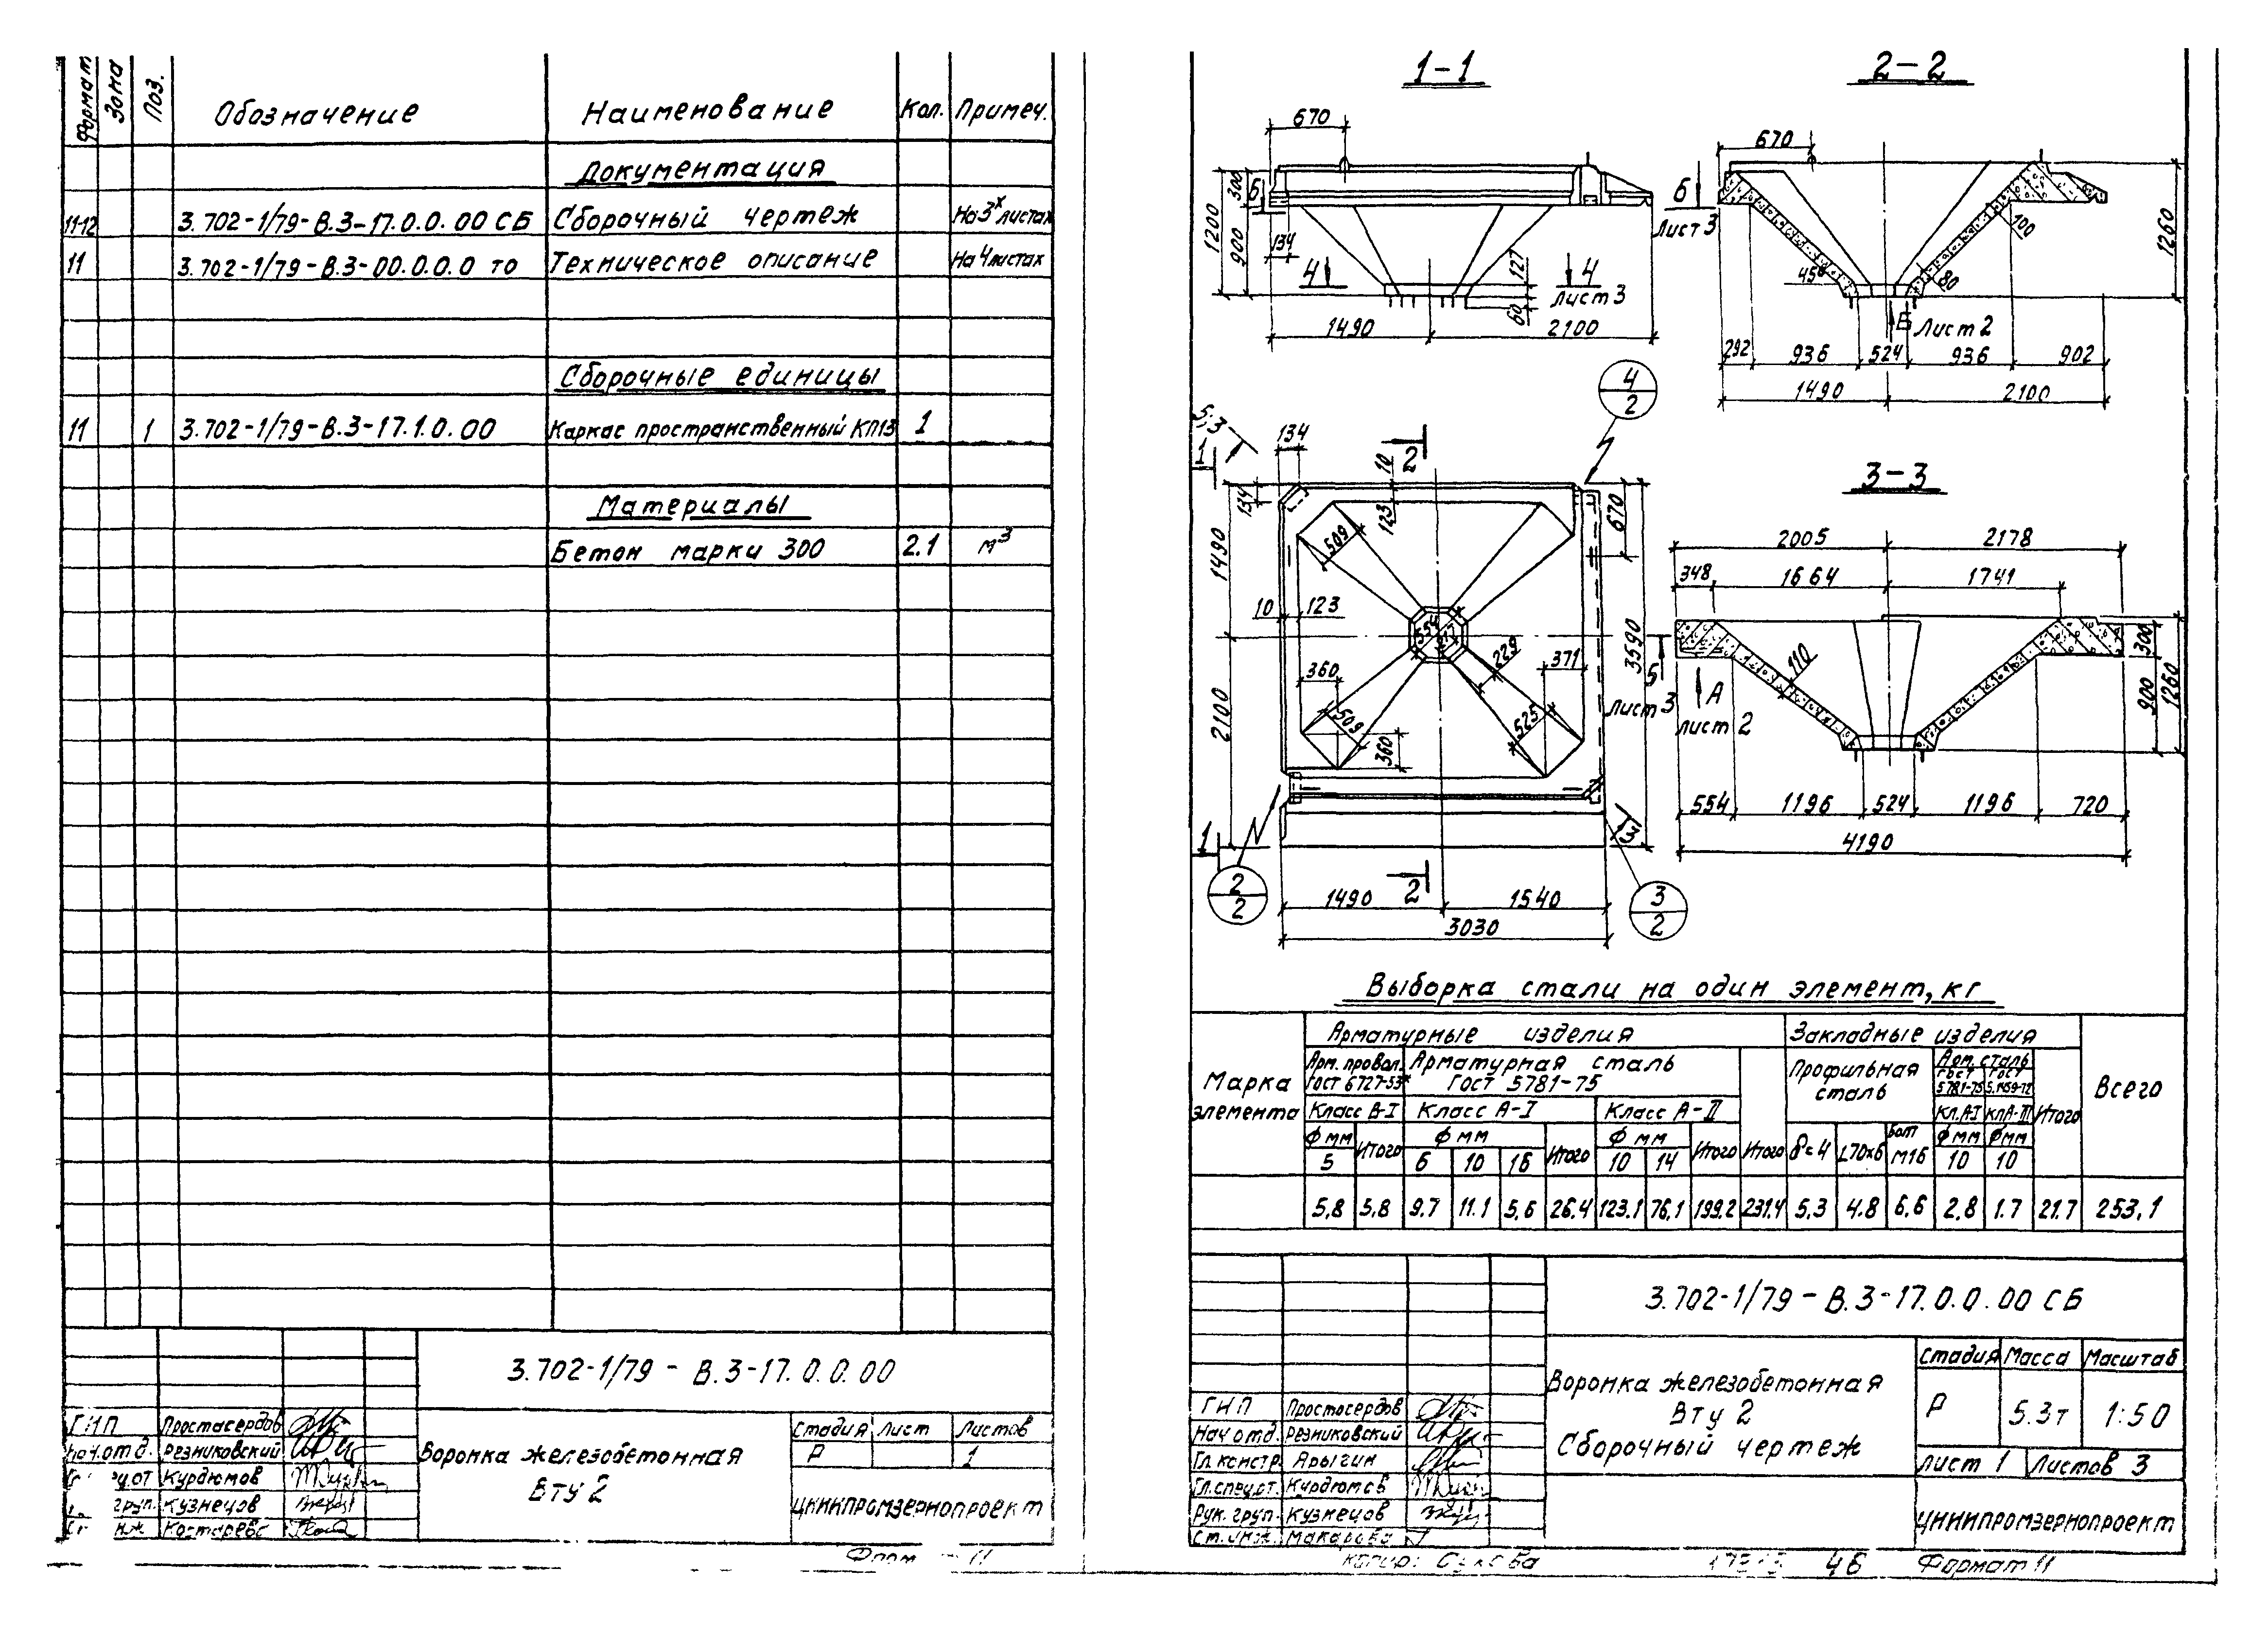 Формат Зона Поз. Обозначение Наименование Кол. Примеч.
Документация
11-12 3.702-1/79-В.3-17.0.0.00 СБ Сборочный чертеж На 3х листах
11 3.702-1/79-В.3-00.0.0.0 ТО Техническое описание На 4 листах
Сборочные единицы
11 1 3.702-1/79-В.3-17.1.0.00 Каркас пространственный КП13 1
Материалы
Бетон марки 300 2.1 м3
3.702-1/79 - В.3-17.0.0.00
ГИП Простасердов
Нач.отд. Резниковский
Курдюмов
груп. Кузнецов
Костарева
Воронка железобетонная
Вту 2
Стадия Лист Листов
Р 1
ЦНИИПРОМЗЕРНОПРОЕКТ
11
1-1
670
1200
300
900
Б
134
4
4
Лист 3
127
60
1490 2100
2-2
670
Б
Лист 3
100
45°
80
1260
Б Лист 2
292 936 524 936 902
1490 2100
4
2
5;3
1
134
10
2
134
123
670
509
1490
10 123
554
617
229
371
3590
5
Лист 3
360
509
360
525
2100
1
2
2
2
3
2
1490 1540
3030
3-3
2005 2178
348 1664 1741
110
300
900
1260
А
Лист 2
554 1196 524 1196 720
4190
Выборка стали на один элемент, кг
Марка элемента
Арматурные изделия Закладные изделия Всего
Арм. провол. ГОСТ 6727-53* Арматурная сталь ГОСТ 5781-75 Профильная сталь Арм. сталь
ГОСТ 5781-75 ГОСТ 5.1459-72
Класс В-I Класс А-I Класс А-III Кл.А-I Кл.А-III Итого
Ф мм Итого Ф мм Итого Ф мм Итого Итого δ=4 L70х6 Болт М16 Ф мм Ф мм
5 6 10 16 10 14 10 10
5,8 5,8 9.7 11.1 5,6 26.4 123.1 76,1 199.2 231.4 5.3 4.8 6,6 2,8 1.7 21.7 253,1
3.702-1/79 - В.3-17.0.0.00 СБ
ГИП Простосердов
Нач отд. Резниковский
Гл. констр. Арыгин
Гл.спец.от. Курдюмов
Рук. груп. Кузнецов
Ст. инж. Макарова
Воронка железобетонная
Вту 2
Сборочный чертеж
Стадия Масса Масштаб
Р 5.3т 1:50
Лист 1 Листов 3
ЦНИИПРОМЗЕРНОПРОЕКТ
Копир: 46 Формат 11